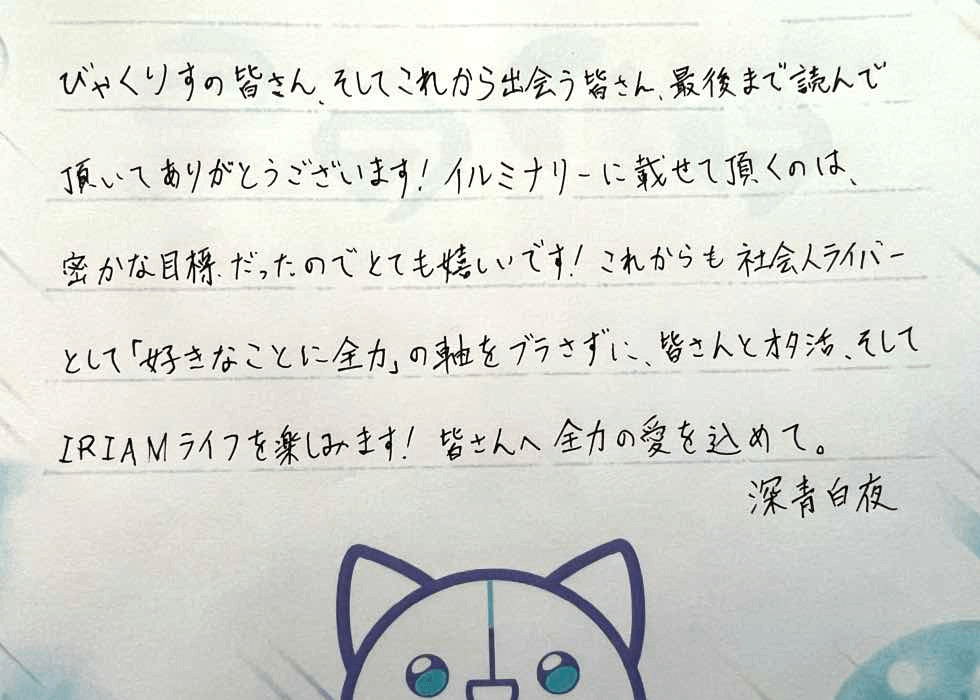 びゃくりすの皆さん、そしてこれから出会う皆さん、最後まで読んで
頂いてありがとうございます！イルミナリーに載せて頂くのは、
密かな目標だったのでとても嬉しいです！これからも社会人ライバー
として「好きなことに全力」の軸をブラさずに、皆さんとオタ活、そして
IRIAMライフを楽しみます！皆さんへ全力の愛を込めて。
深青白夜